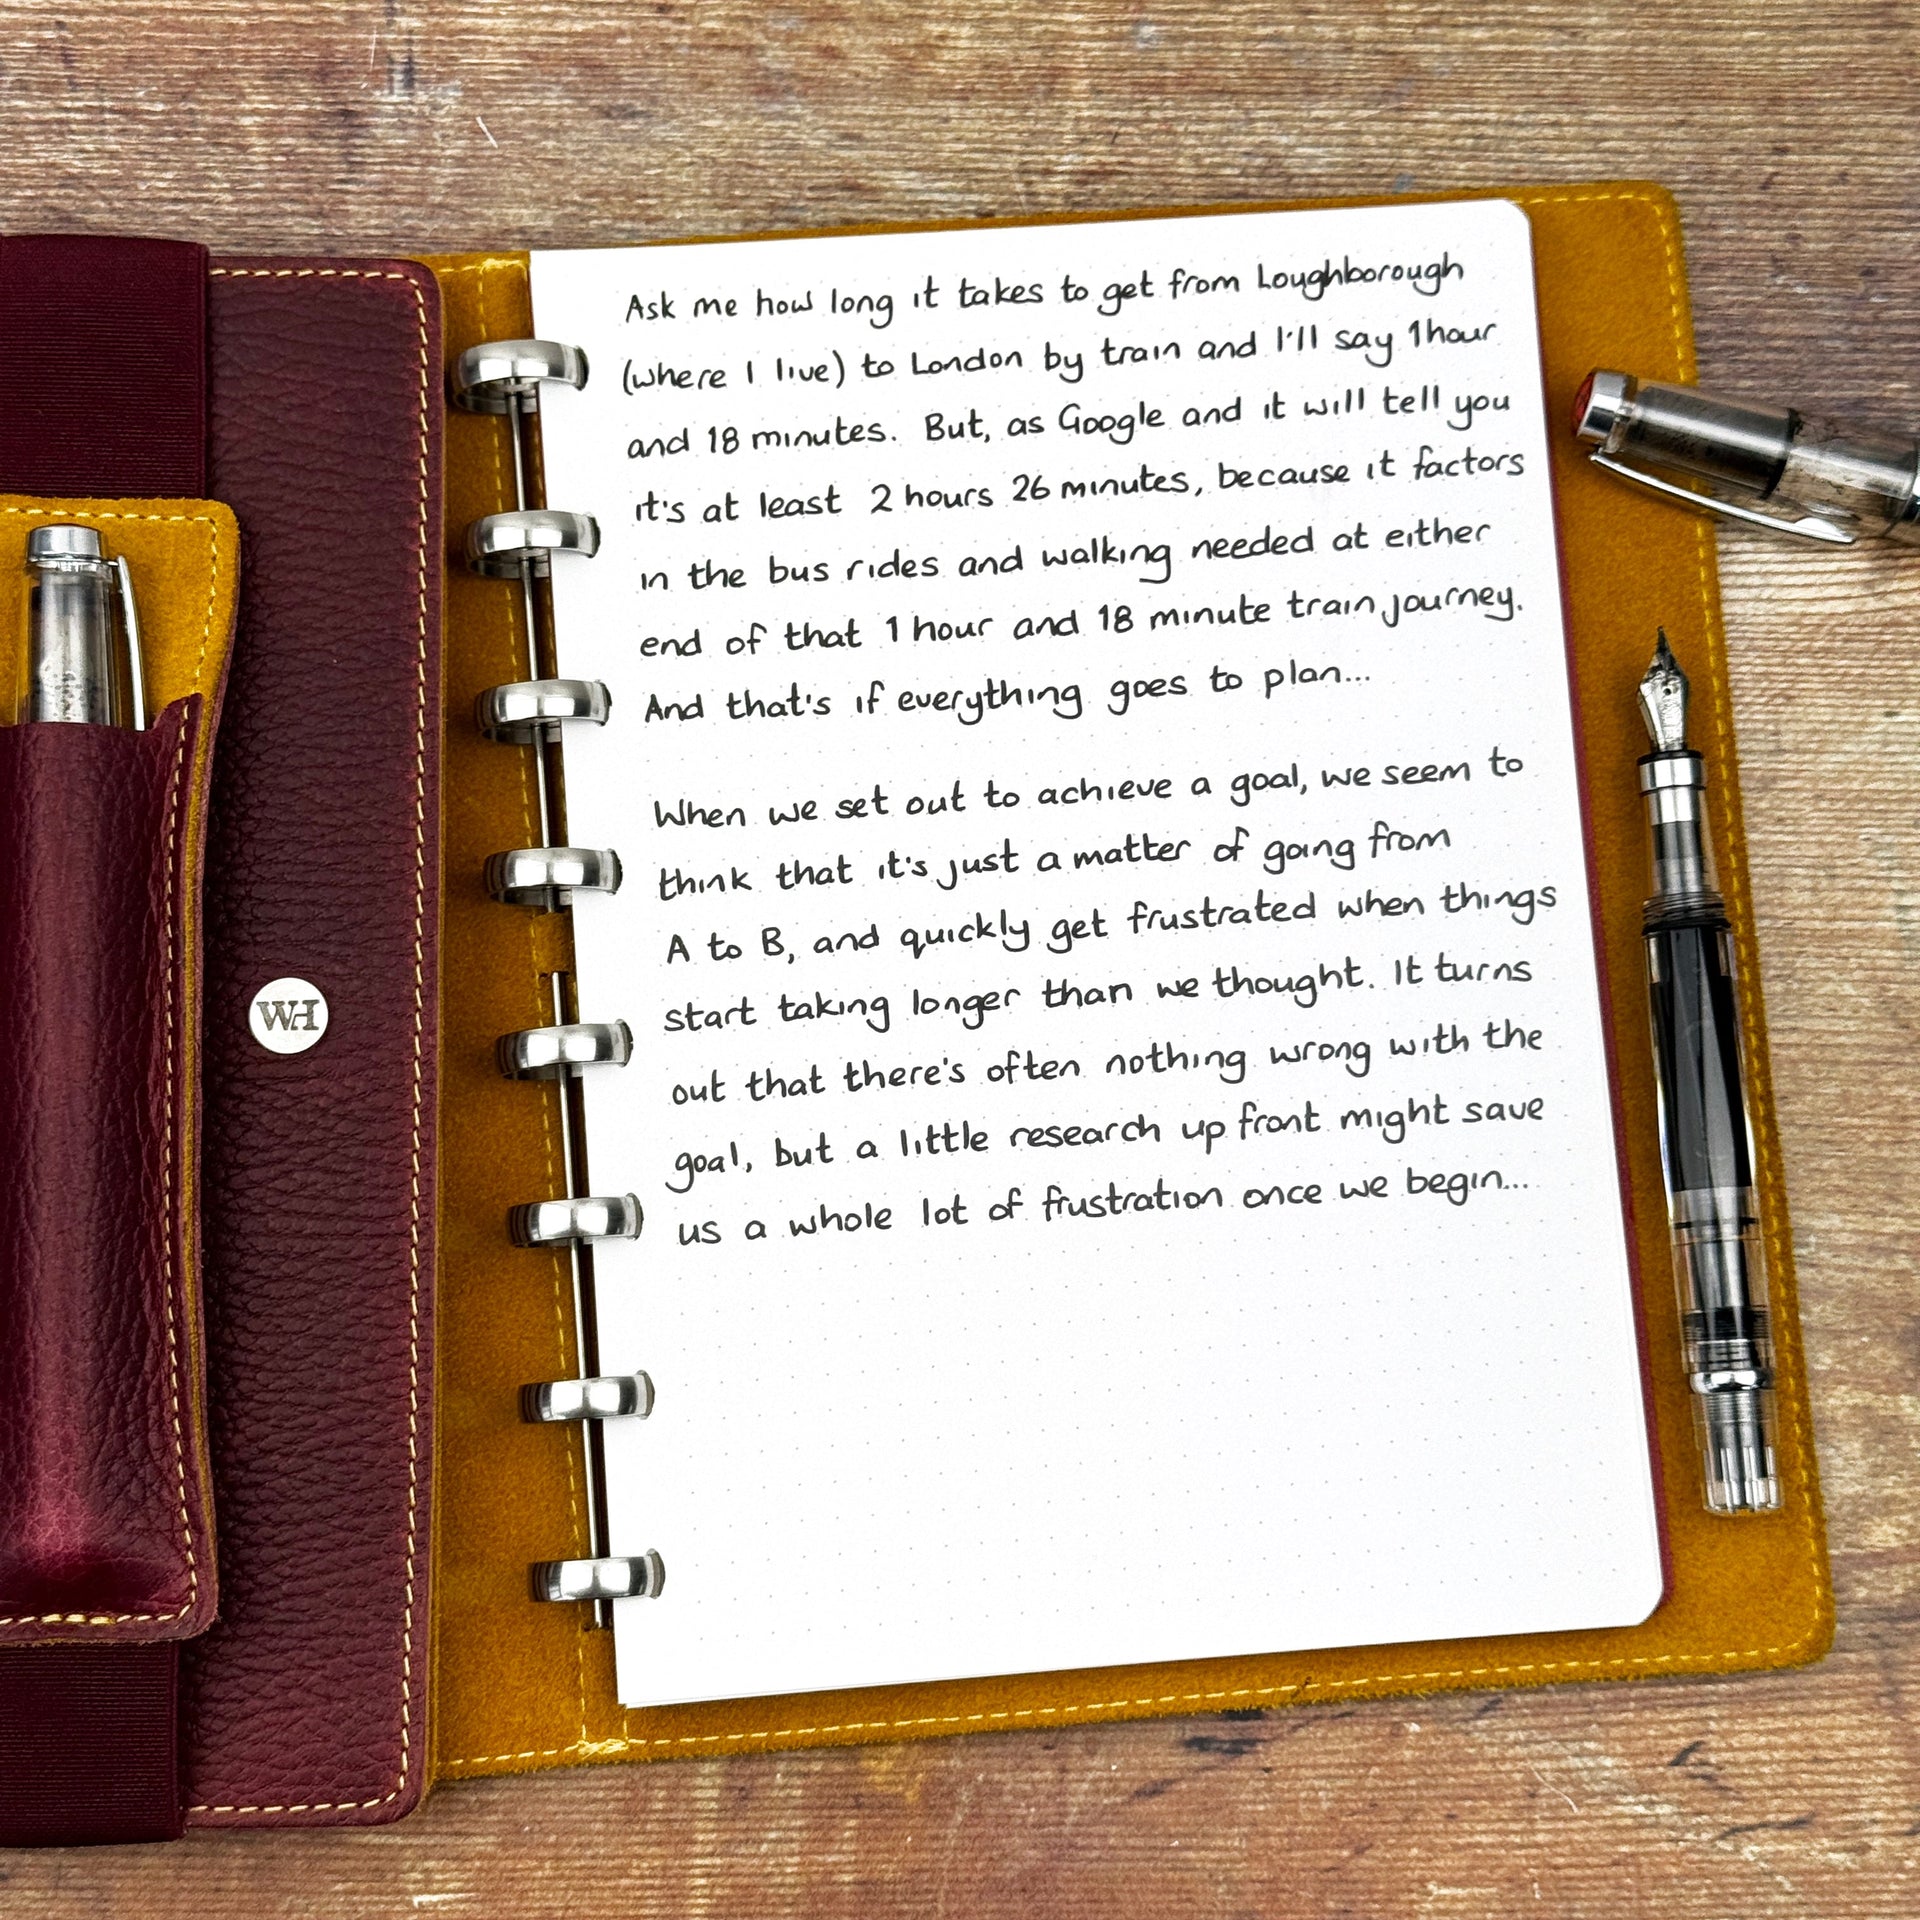 Ask me how long it takes to get from Loughborough
(where I live) to London by train and I'll say 1 hour
and 18 minutes. But, as Google and it will tell you
it's at least 2 hours 26 minutes, because it factors
in the bus rides and walking needed at either
end of that 1 hour and 18 minute train journey.
And that's if everything goes to plan...
When we set out to achieve a goal, we seem to
think that it's just a matter of going from
A to B, and quickly get frustrated when things
start taking longer than we thought. It turns
out that there's often nothing wrong with the
goal, but a little research up front might save
us a whole lot of frustration once we begin...
WH